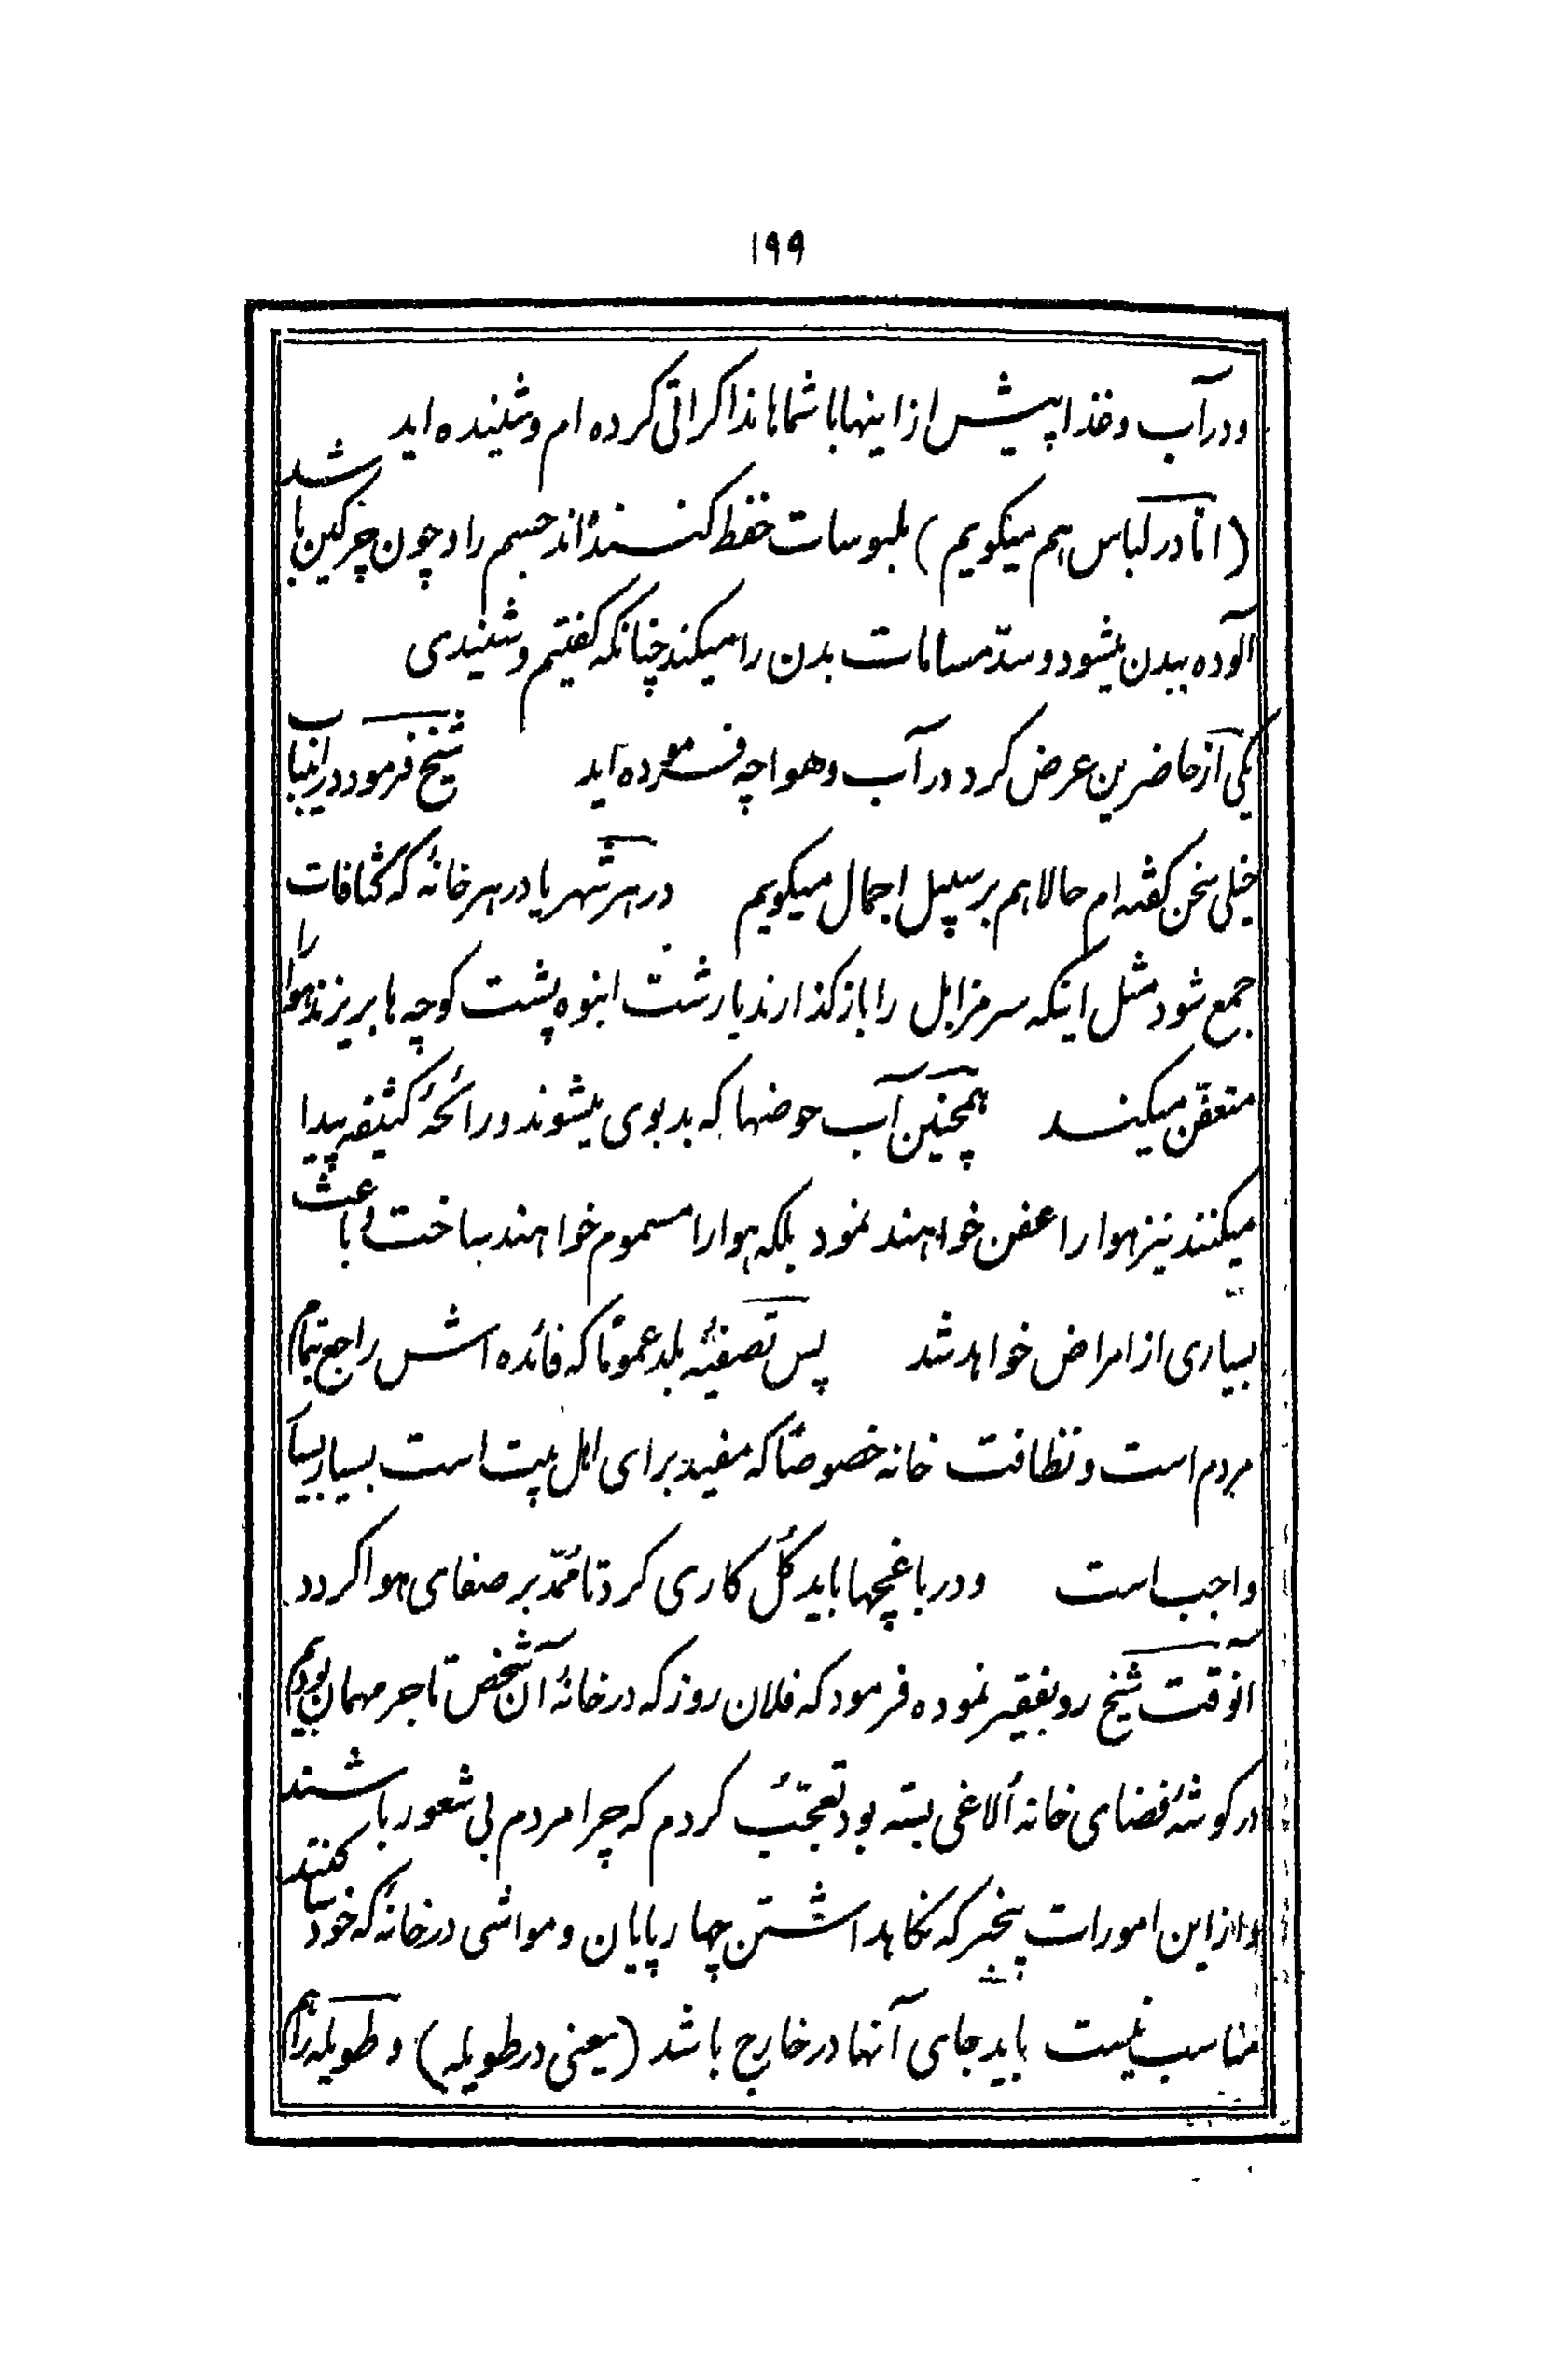 ۱۹۹
و در آب و غذا پیش از اینها با شماها مذاکراتی کرده ام و شنیده اید
(اما در لباس هم میکویم) ملبوسات حفظ کننده‌اند جسم را و چون چرکین باشد
آلوده ببدن میشود و سدّ مسامات بدن را میکند چنانکه کفتیم و شنیدی
یکی از حاضرین عرض کرد در آب و هوا چه فرموده اید شیخ فرمود در اینباب
خیلی سخن کفته ام حالا هم بر سبیل اجمال میکویم در هر شهر یا در هر خانهٔ که کثافات
جمع شود مثل اینکه سر مزابل را باز کذارند یا رشت انبوه پشت کوچه ها بریزند هوا را
متعفّن میکند همچنین آب حوضها که بد بوی میشوند و رائحهٔ کثیفه پیدا
میکنند نیز هوا را عفن خواهند نمود بلکه هوا را مسموم خواهند ساخت و باعث
بسیاری از امراض خواهد شد پس تصفیهٔ بلد عموماً که فائده اش راجع بتمام
مردم است و نظافت خانه خصوصاً که مفید برای اهل بیت است بسیار بسیار
واجب است و در باغچها باید کُل کاری کرد تا مُمّد بر صفای هوا کردد
آنوقت شیخ رو بفقیر نموده فرمود که فلان روز که در خانهٔ آن شخص تاجر مهمان بودیم
در کوشهٔ فضای خانه اُلاغی بسته بود تعجّب کردم که چرا مردم بی شعور باشند
و از این امورات بیخبر که نکاهداشتن چهارپایان و مواشی در خانهٔ که خود ساکنند
مناسب نیست باید جای آنها در خارج باشد (یعنی در طویله) و طویله را هم